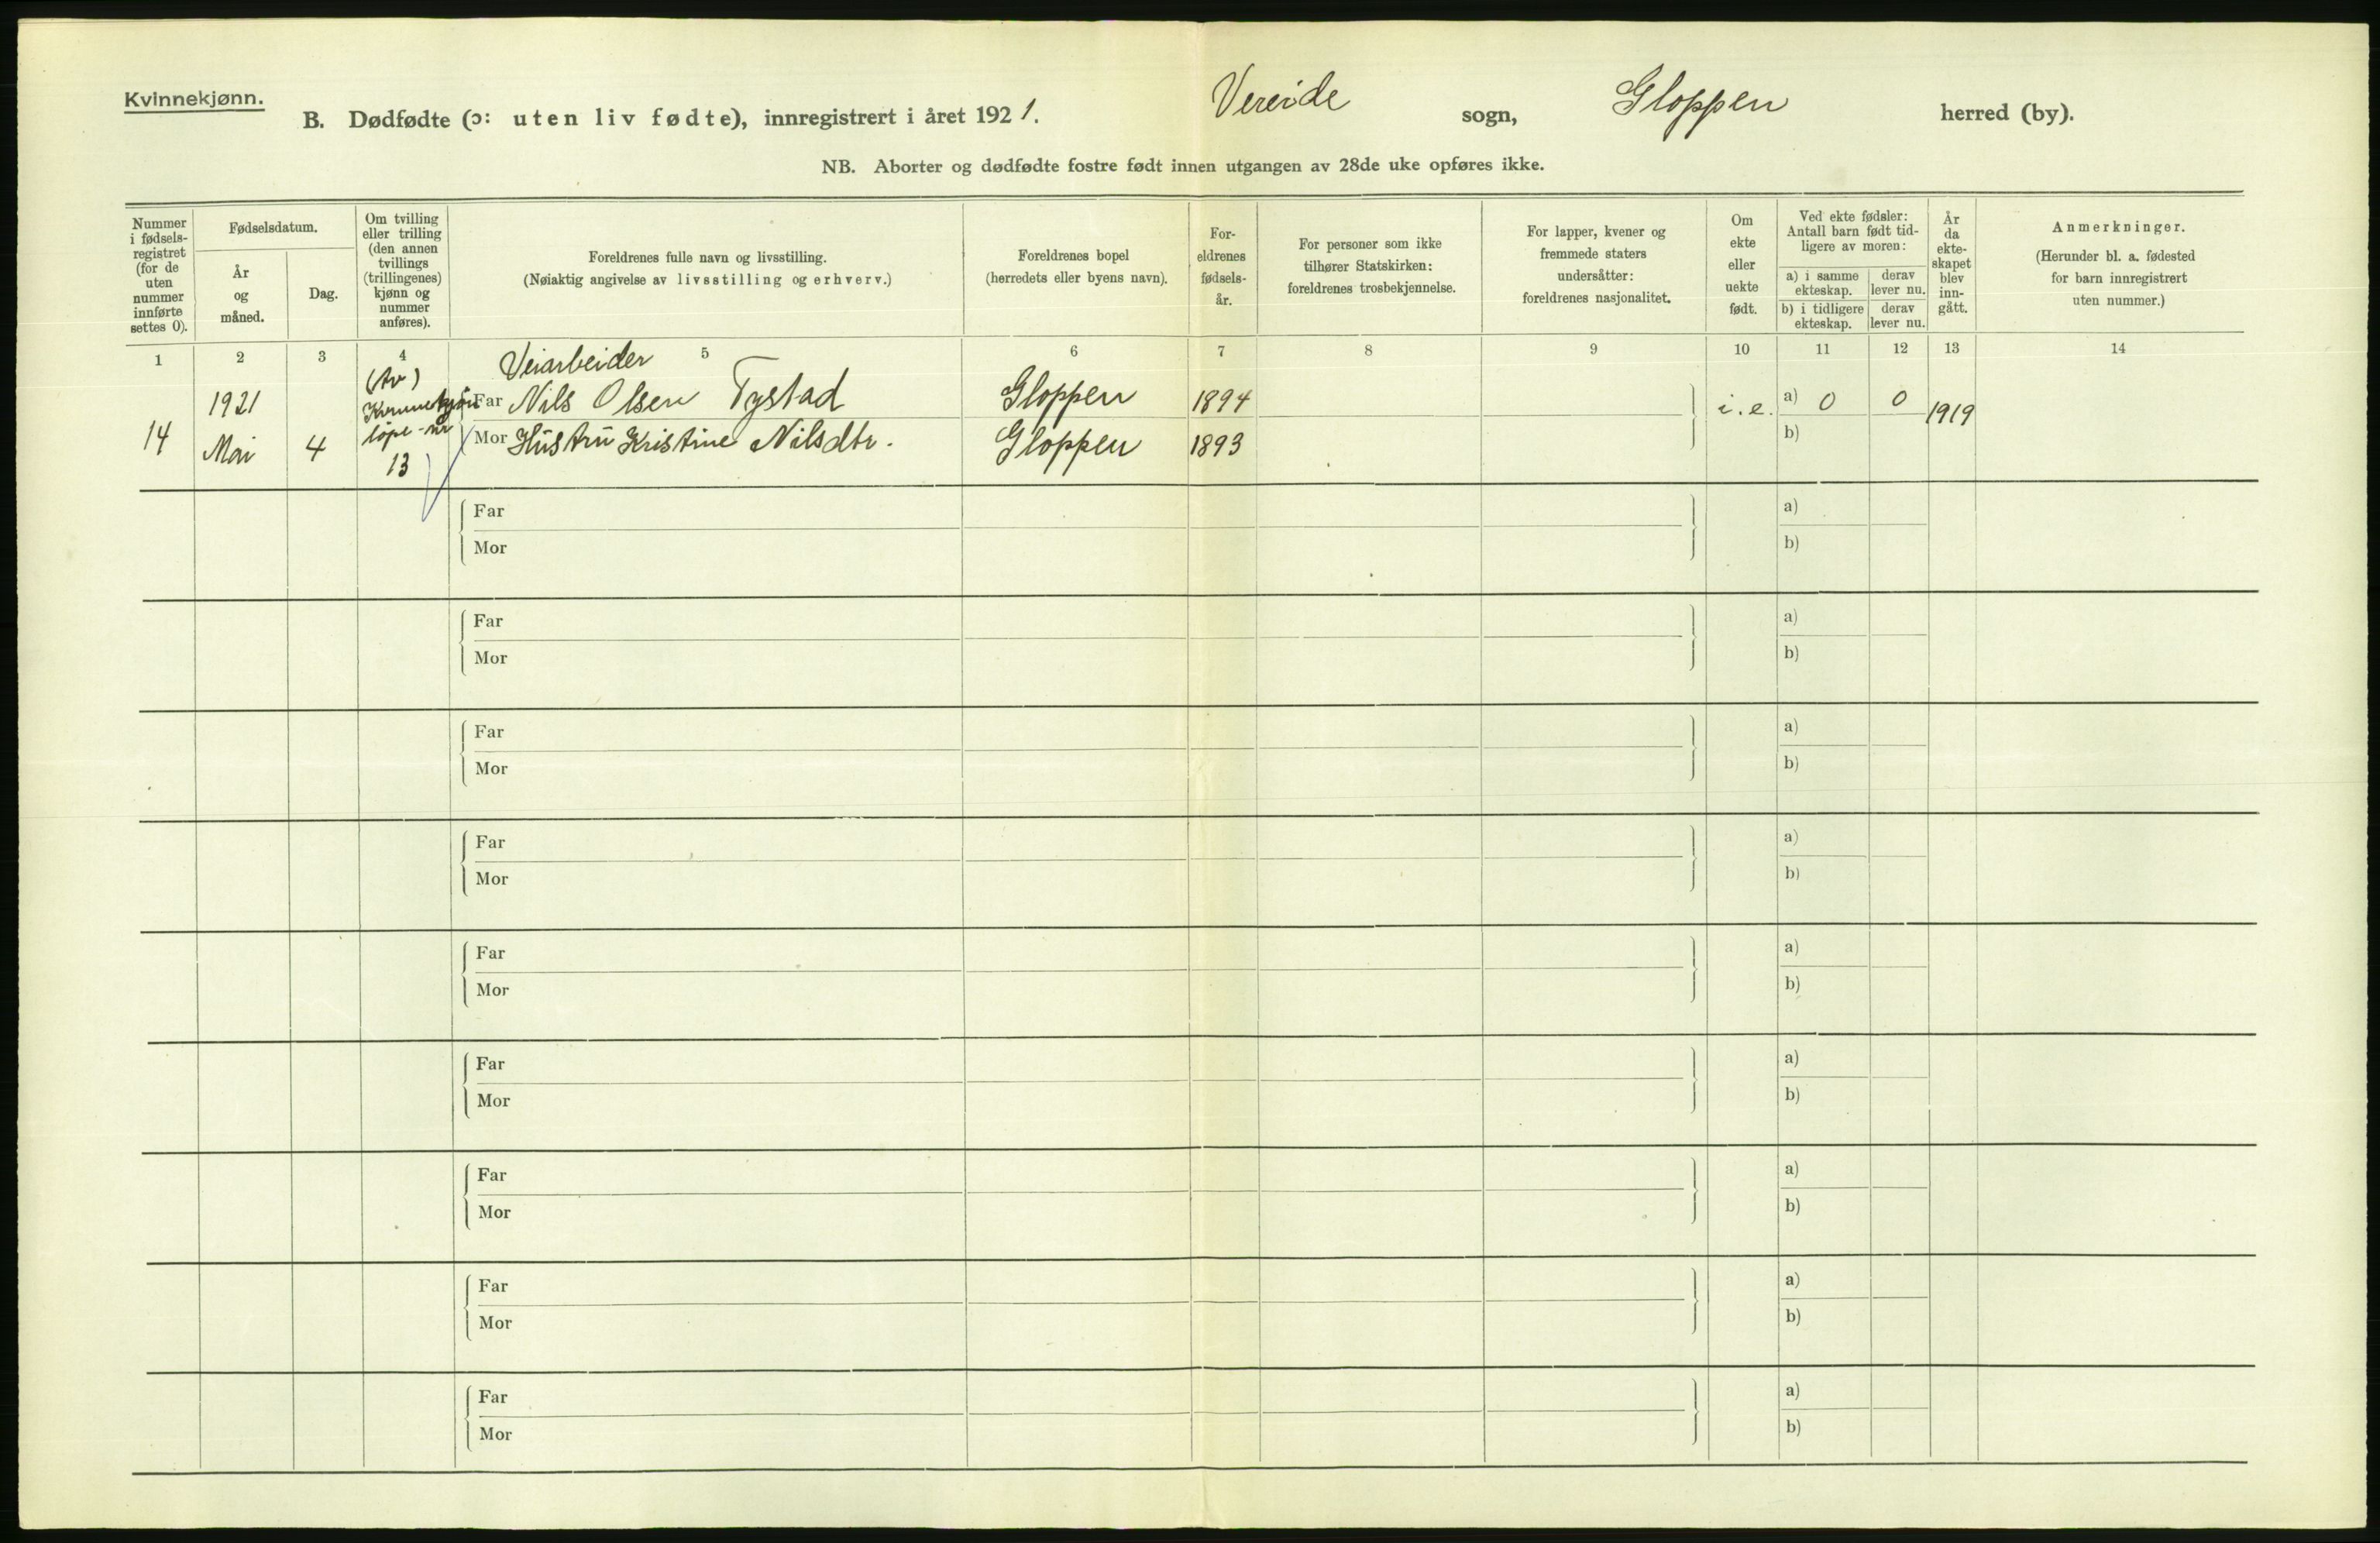 Kvinnekjønn.
B. Dødfødte (ɔ: uten liv fødte), innregistrert i året 1921. Vereide sogn, Gloppen herred (by).
NB. Aborter og dødfødte fostre født innen utgangen av 28de uke opføres ikke.
Nummer
i fødsels-
registret
(for de
uten
nummer
innførte
settes 0).
Fødselsdatum.
År
og
måned.
Dag.
Om tvilling
eller trilling
(den annen
tvillings
(trillingenes)
kjønn og
nummer
anføres).
Foreldrenes fulle navn og livsstilling.
(Nøiaktig angivelse av livsstilling og erhverv.)
Foreldrenes bopel
(herredets eller byens navn).
For-
eldrenes
fødsels-
år.
For personer som ikke
tilhører Statskirken:
foreldrenes trosbekjennelse.
For lapper, kvener og
fremmede staters
undersåtter:
foreldrenes nasjonalitet.
Om
ekte
eller
uekte
født.
Ved ekte fødsler:
Antall barn født tid-
ligere av moren:
a) i samme
ekteskap.
derav
lever nu.
b) i tidligere
ekteskap.
derav
lever nu.
År
da
ekte-
skapet
blev
inn-
gått.
Anmerkninger.
(Herunder bl. a. fødested
for barn innregistrert
uten nummer.)
1 2 3 4 5 6 7 8 9 10 11 12 13 14
14
1921
Mai
4
(Av)
Kvinnekjøn
løpe-nr
13
Veiarbeider
Far Nils Olsen Tystad Gloppen 1894
Mor Hustru Kristine Nilsdtr. Gloppen 1893
i.e.
a) 0 0
b)
1919
Far a)
Mor b)
Far a)
Mor b)
Far a)
Mor b)
Far a)
Mor b)
Far a)
Mor b)
Far a)
Mor b)
Far a)
Mor b)
Far a)
Mor b)
Far a)
Mor b)